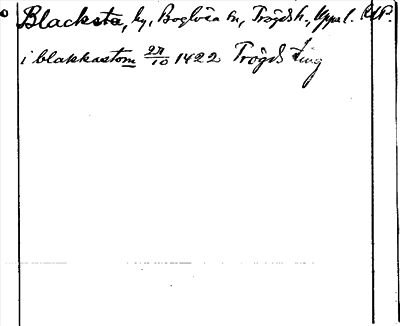 Blacksta, by, Boglösa sn, Trögds h., Uppsl. RAP.
i blakkastom 27/10 1422 Trögds ting